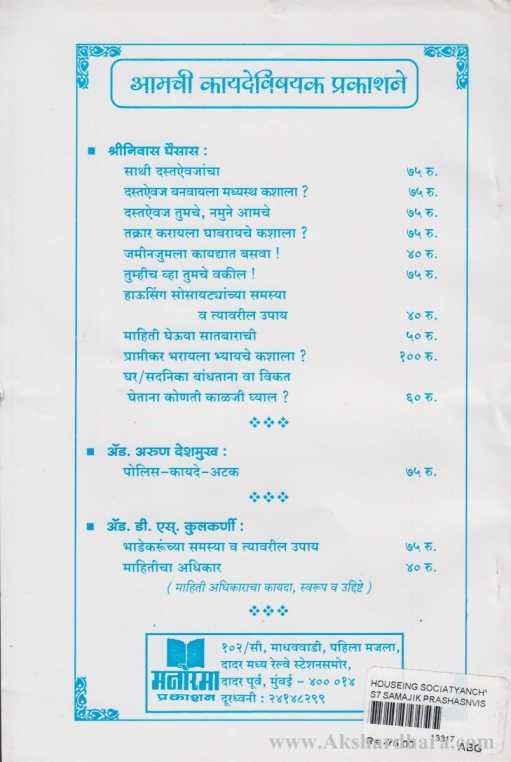 आमची कायदेविषयक प्रकाशने
श्रीनिवास घैसास :
साथी दस्तऐवजांचा ७५ रु.
दस्तऐवज बनवायला मध्यस्थ कशाला ? ७५ रु.
दस्तऐवज तुमचे, नमुने आमचे ७५ रु.
तक्रार करायला घाबरायचे कशाला ? ७५ रु.
जमीनजुमला कायद्यात बसवा ! ४० रु.
तुम्हीच व्हा तुमचे वकील ! ७५ रु.
हाऊसिंग सोसायट्यांच्या समस्या
व त्यावरील उपाय ४० रु.
माहिती घेऊया सातबाराची ५० रु.
प्राप्तीकर भरायला भ्यायचे कशाला ? १०० रु.
घर/सदनिका बांधताना वा विकत
घेताना कोणती काळजी घ्याल ? ६० रु.
अ‍ॅड. अरुण देशमुख :
पोलिस-कायदे-अटक ७५ रु.
अ‍ॅड. डी. एस्. कुलकर्णी :
भाडेकरूंच्या समस्या व त्यावरील उपाय ७५ रु.
माहितीचा अधिकार ४० रु.
( माहिती अधिकाराचा कायदा, स्वरूप व उद्दिष्टे )
मनोरमा
प्रकाशन
१०२/सी, माधववाडी, पहिला मजला,
दादर मध्य रेल्वे स्टेशनसमोर,
दादर पूर्व, मुंबई - ४०० ०१४
दूरध्वनी : २४१४८२९९
HOUSEING SOCIATYANCH'
S7 SAMAJIK PRASHASNVIS
13317
ABG
www.Akshardhara.com